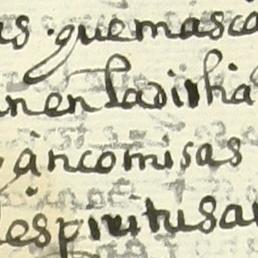 as. que masca
nen la dicha
yan comisas
espiritusa